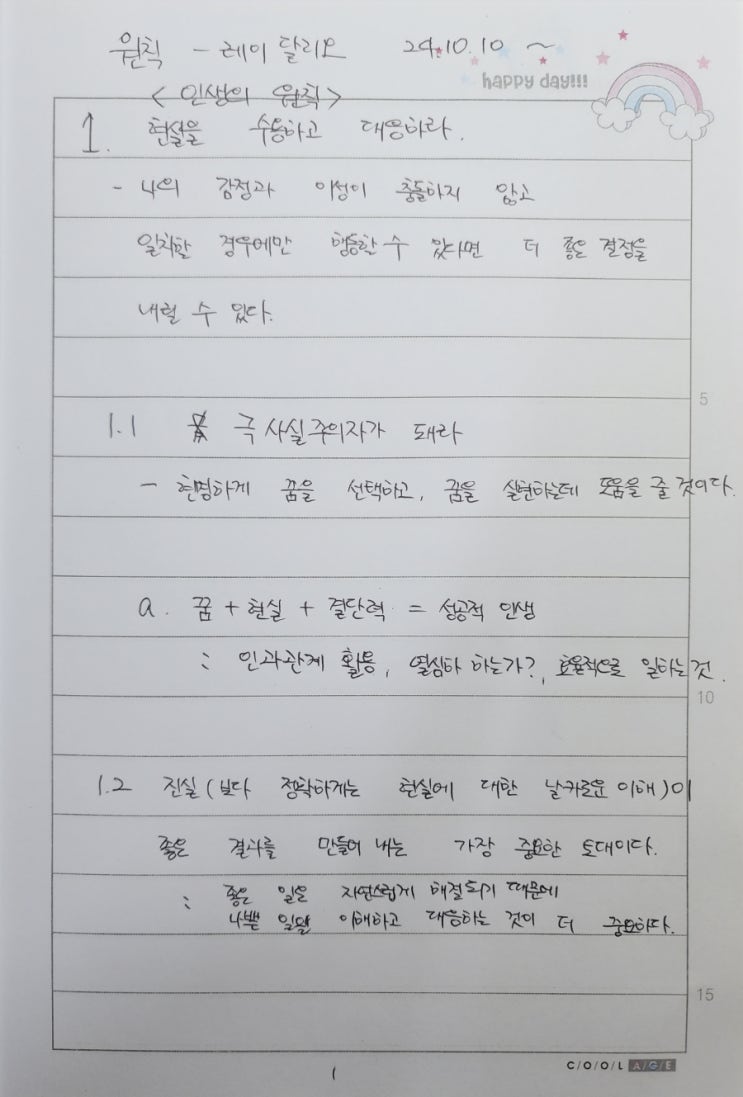 원칙 - 레이 달리오 24.10.10 ~
happy day!!!
< 인생의 원칙 >
1. 현실을 수용하고 대응하라.
- 나의 감정과 이성이 충돌하지 않고
일치할 경우에만 행동할 수 있다면 더 좋은 결정을
내릴 수 있다.
5
1.1 극사실주의자가 돼라
- 현명하게 꿈을 선택하고, 꿈을 실현하는데 도움을 줄 것이다.
a. 꿈 + 현실 + 결단력 = 성공적 인생
: 인과관계 활용, 열심히 하는가?, 효율적으로 일하는 것.
10
1.2 진실(보다 정확하게는 현실에 대한 날카로운 이해)이
좋은 결과를 만들어 내는 가장 중요한 토대이다.
: 좋은 일은 자연스럽게 해결되기 때문에
나쁜 일을 이해하고 대응하는 것이 더 중요하다.
15
C/O/O/L A/G/E
1